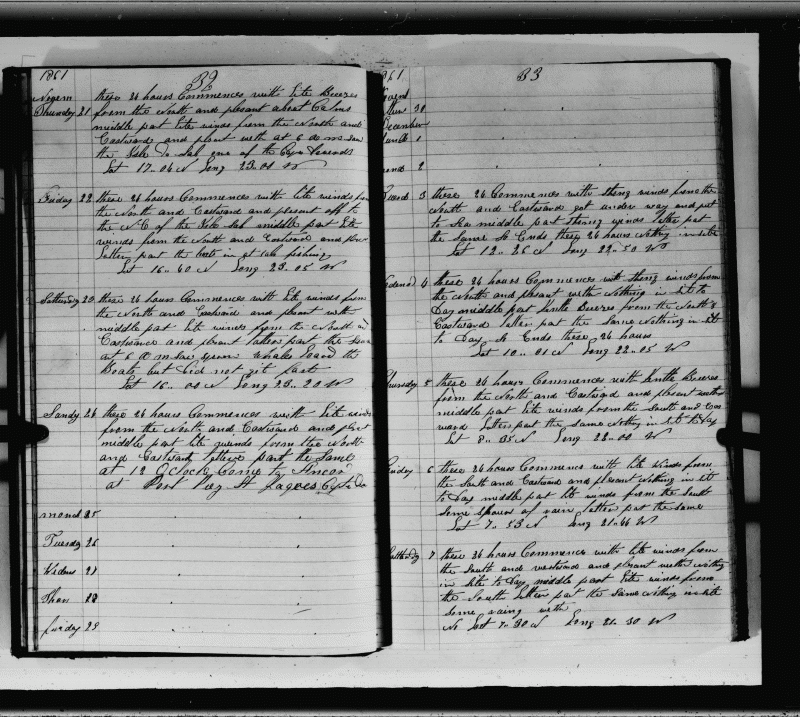 1861
32
Thursday 21 these 24 hours Commences with lite Breezes
from the North and plesant about Calms
middle part lite winds from the North and
Eastward and plesant with at 6 a m saw
the Isle De Sal one of the Cape
Lat 17..06 N Long 23..01 W
Friday 22 these 24 hours Commences with lite winds
the North and Eastward and plesant off to
the of the middle part lite
winds from the North and Eastward and
Latter part the boats in fishing
Lat 16..40 N Long 23..05 W
Satturday 23 these 24 hours Commences with lite winds from
the North and Eastward and plesant with
middle part lite winds from the North
Eastward and plesant latter part the
at 6 a m saw whales the
Boats but did not get fast
Lat 16..01 N Long 23..20 W
Sandy 24 these 24 hours Commences with lite winds
from the North and Eastward and
middle part lite winds from the North
and Eastward latter part the Same
at 12 Oclock Came to
at Port
mond 25
Tuesday 26
27
Thor 28
friday 29
1861
33
30
December
1
2
3 these 24 Commences with strong winds from the
North and Eastward got under way and put
to Sea middle part strong winds latter part
the Same So Ends these 24 hours nothing in site
Lat 12..26 N Long 22..50 W
4 these 24 hours Commences with strong winds from
the North and plesant with Nothing in site to
Day middle part Breezes from the North &
Eastward latter part the Same Nothing in site
to Day So Ends these 24 hours
Lat 10..01 N Long 22..05 W
Thursday 5 these 24 hours Commences with Breezes
from the North and Eastward and plesant
middle part lite winds from the South and
ward latter part the Same Nothing in site to Day
Lat 8..05 N Long 22..00 W
Friday 6 these 24 hours Commencs with lite winds from
the South and Eastward and plesant Nothing in site
to Day middle part lite winds from the South
Some of rain latter part the same
Lat 7..53 N Long 21..44 W
7 these 24 hours Commences with lite winds from
the South and westward and plesant Nothing
in site to Day middle part lite winds from
the South latter part the Same Nothing in site
Some raing with
No Lat 7..30 N Long 21..30 W